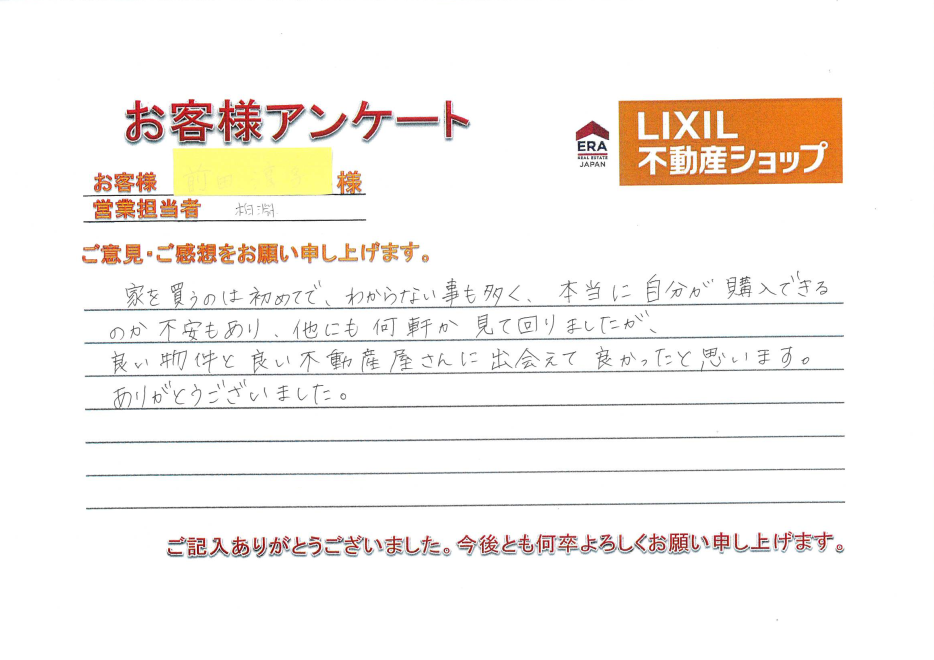 お客様アンケート
ERA
REAL ESTATE
JAPAN
LIXIL
不動産ショップ
お客様 様
営業担当者 相澗
ご意見・ご感想をお願い申し上げます。
家を買うのは初めてで、わからない事も多く、本当に自分が購入できる
のか不安もあり、他にも何軒か見て回りましたが、
良い物件と良い不動産屋さんに出会えて良かったと思います。
ありがとうございました。
ご記入ありがとうございました。今後とも何卒よろしくお願い申し上げます。